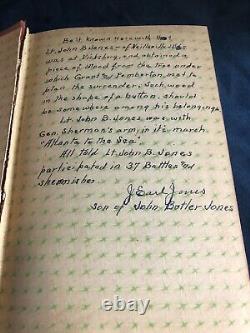 Be it known herewith that
Lt. John B. Jones - of Neillsville Wis
was at Vicksburg, and obtained a
piece of wood from the tree under
which Grant and Pemberton met to
plan the surrender. Such wood
in the shape of a button, should
be somewhere among his belongings
Lt. John B. Jones was with
Gen. Sherman's army in its march
"Atlanta to the Sea".
All told Lt John B. Jones
participated in 37 Battles and
skirmishes
J Earl Jones
son of John Butler Jones
© te_jones